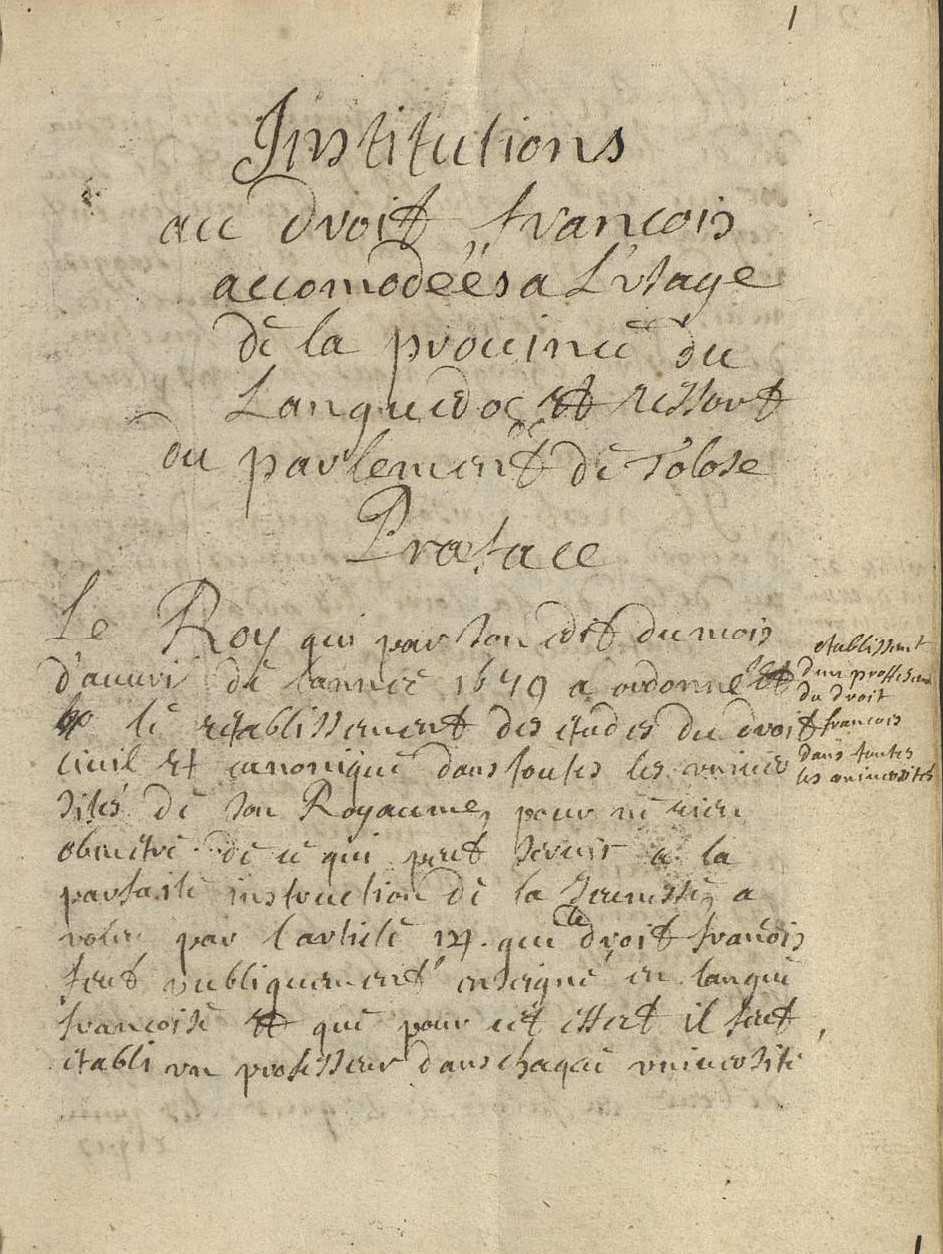 1
Institutions
au droit francois
accomodéés a L'usage
de la prouince du
Languedoc et ressort
du parlement de Tolose
Præface
Le Roy qui par son edit du mois
d'auvril de lannee 1679 a ordonné
le retablissement des etudes du droit
ciuil et canonique dans toutes les vniuer
sités de son Royaume, pour ne rien
obmetre de ce qui peut seruir a la
parfaite instruction de la Jeunesse, a
volu par l'article 14. que le droit francois
seret publiquement enseigné en langue
francoise et que pour cet effect il seret
etabli vn professeur dans chaque vniuersité
etablissent
dun professeur
du droit
francois
dans toutes
les vniuersités